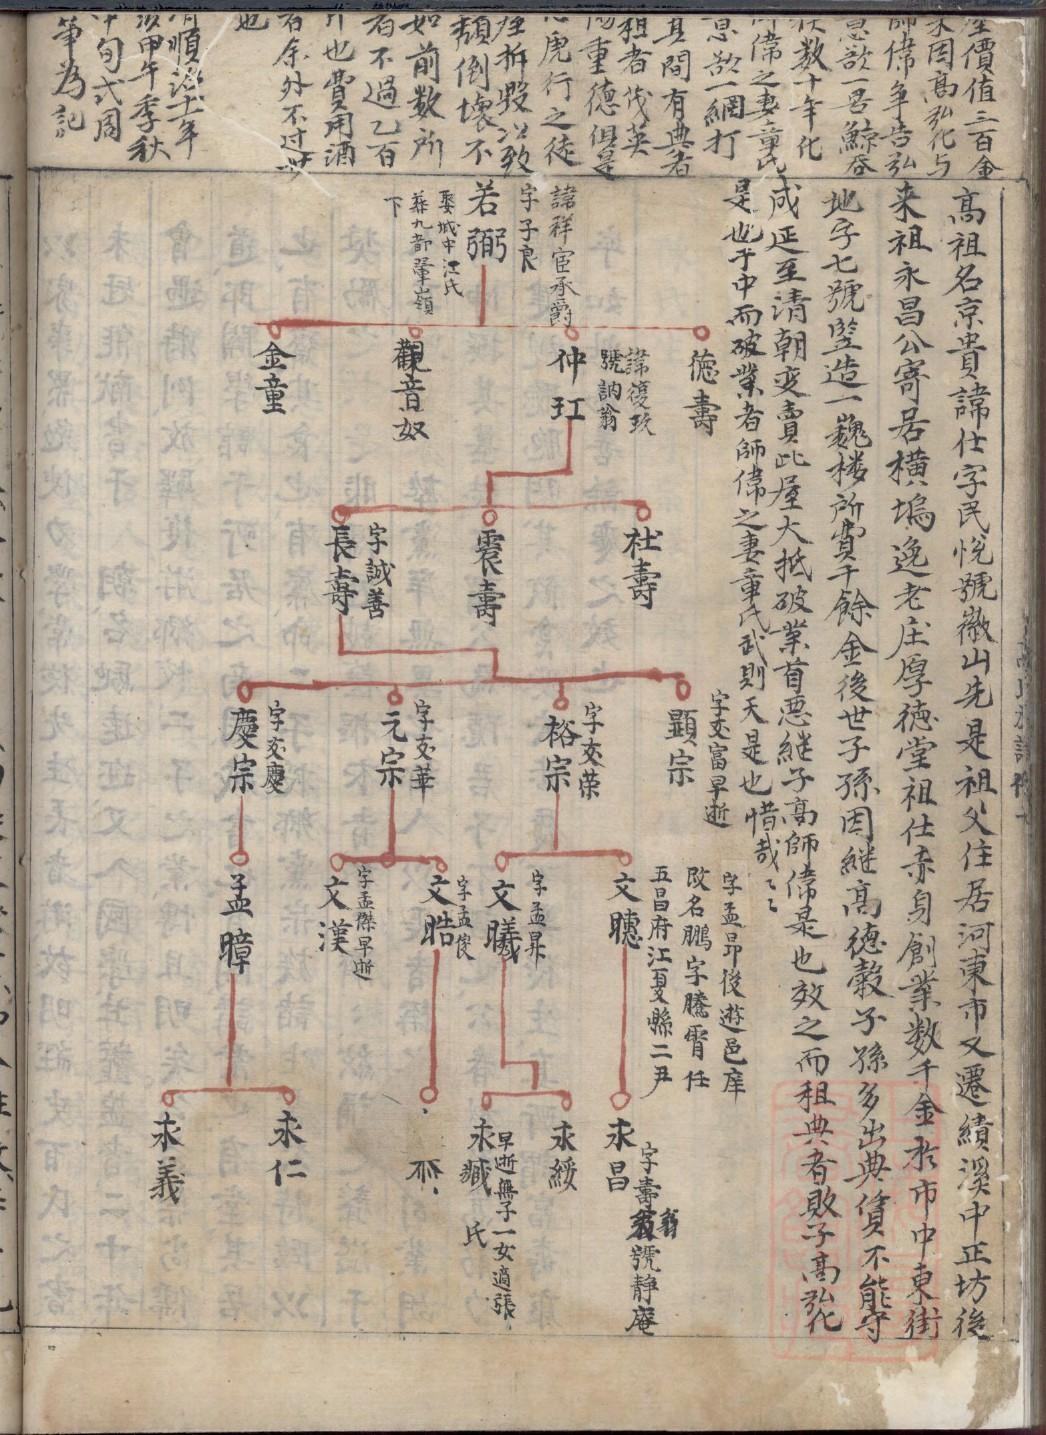 屋價值三百金
來因高弘化与
師偉爭告弘
意欲一吞鯨吞
秩数十年化
師偉之妻童氏
意欲一網打
其間有典者
租者伐英
重德俱是
虎行之徒
拆毀以致
頹倒壞不
如前数所
者不過乙百
也費用酒
者余外不过
也
順治十一年
甲午季秋
中旬式周
筆為記
高祖名京貴諱仕字民悅號徽山先是祖父住居河東市又遷績溪中正坊後
来祖永昌公寄居橫塢逸老庄厚德堂祖仕赤身創業数千金於市中東街
地字七號竪造一巍楼所費千餘金後世子孫因継高德穀子孫多出典賃不能守
成延至清朝变賣此屋大抵破業首惡継子高師偉是也效之而租典者敗子高弘化
是也于中而破業者師偉之妻童氏武則天是也惜哉〻〻
諱祥宦承爵
字子良
若弼
娶城中江氏
葬九都鞏嶺
下
德壽
諱復玖
號訥翁
仲玒
觀音奴
金童
社壽
震壽
字誠善
長壽
字文富早逝
顯宗
字文榮
裕宗
字文華
元宗
字文慶
慶宗
字孟昂俊遊邑庠
改名鵬字騰霄任
五昌府江夏縣二尹
文聰
字孟昇
文曦
字孟俊
文晧
字孟傑早逝
文漢
孟暲
字壽翁號靜庵
永昌
永綏
早逝無子一女適張
氏
永臧
永仁
永義